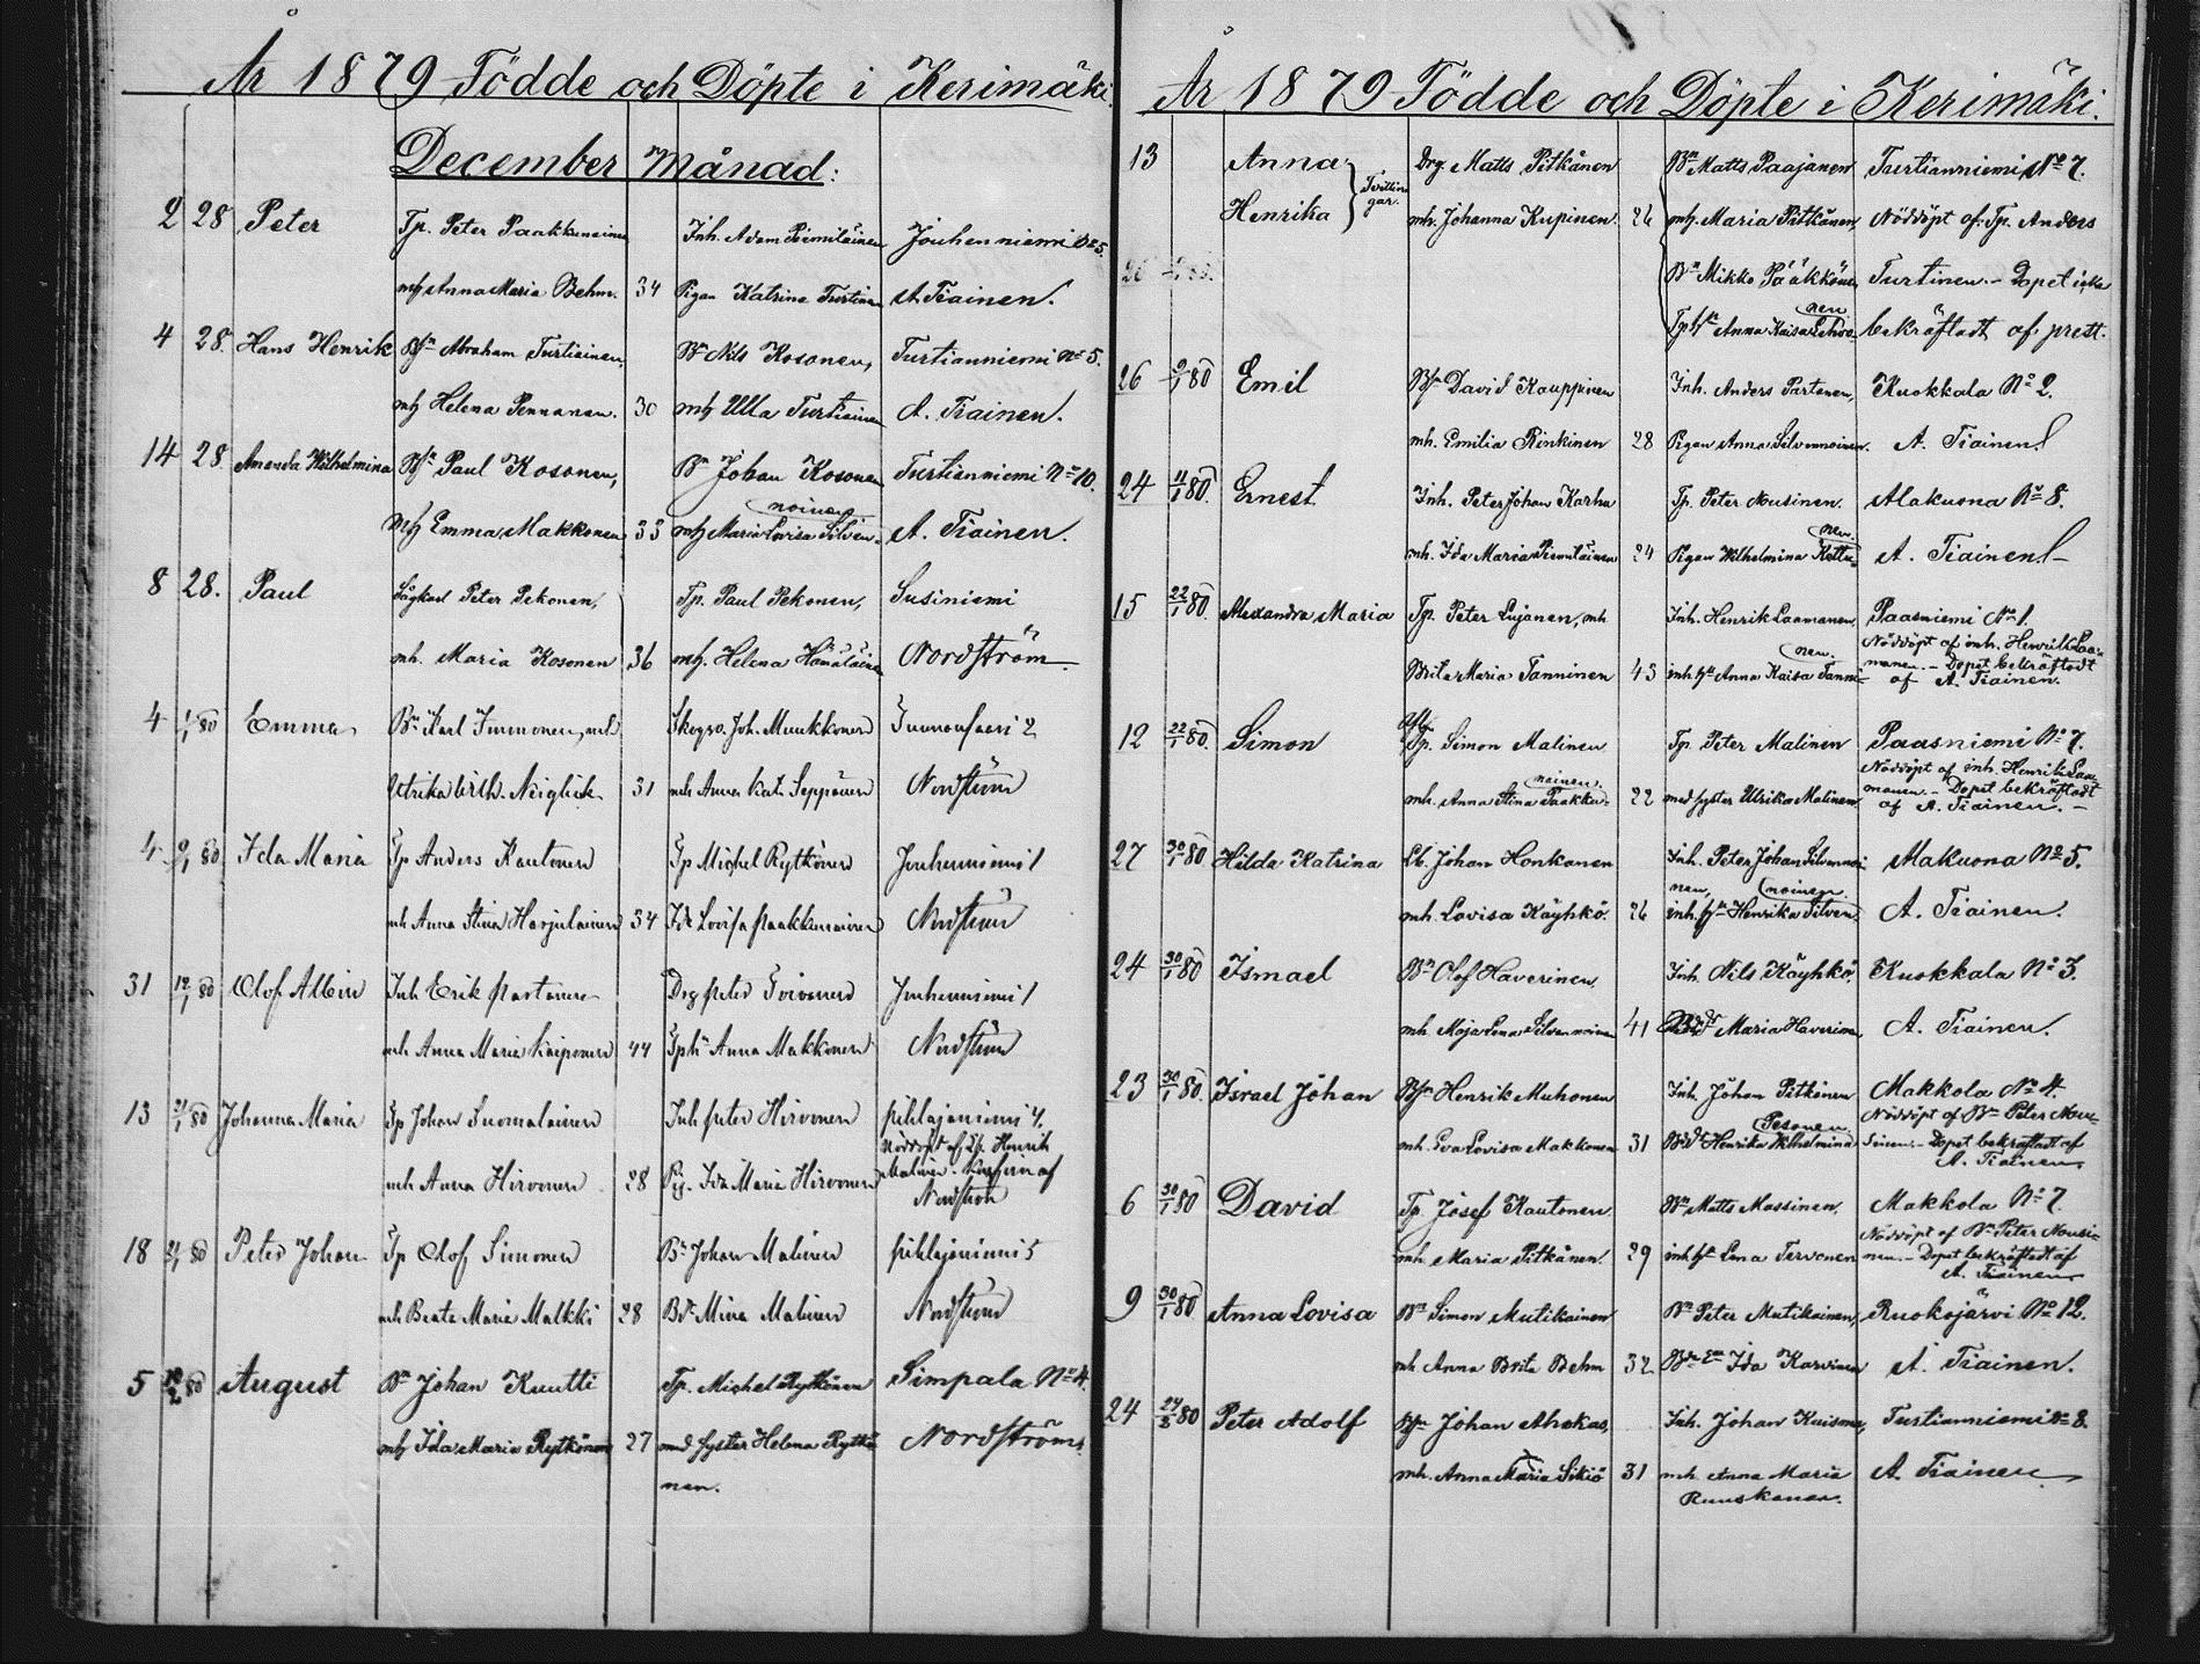 År 1879 Födde och Döpte i Kerimäki.
December Månad:
2 28 Peter Tp. Peter Paakkunainen Inh. Adam Piennäläinen Jouhenniemi № 5.
mh Anna Maria Behm. 34 Pigan Katrina Turtinen A. Tiainen.
4 28. Hans Henrik Bsn Abraham Turtiainen, Bn Nils Kosonen, Turtianniemi № 5.
mh Helena Pennanen. 30 mh Ulla Turtiainen A. Tiainen.
14 28 Amanda Wilhelmina Bsn Paul Kosonen, Bn Johan Kosonen Turtianniemi № 10.
noinen
mh Emma Makkonen 33 mh Maria Lovisa Silven- A. Tiainen.
8 28. Paul Sågkarl Peter Pekonen, Tp. Paul Pekonen, Susiniemi
mh. Maria Kosonen 36 mh. Helena Hämäläinen Nordström.
4 1/1 80 Emma Bn Karl Immonen, mh Skogv. Joh. Muukkonen 2
Ulrika Neiglick 31 mh Anna Kat. Seppänen Nordström
4 6/1 80 Ida Maria Tp Anders Kautonen Tp Michel Rytkönen Jouhenniemi 1
mh Anna Stina Harjulainen 34 Ida Lovisa Paakkunainen Nordström
31 12/1 80 Olof Albin Inh Erik Partanen Drg Peter Jouhenniemi 1
mh Anna Maria Kaiponen 44 Tph Anna Makkonen Nordström
13 21/1 80 Johanna Maria Tp Johan Suomalainen Inh Peter Hirvonen Pihlajaniemi 4.
Nöddöpt af Tp. Henrik
Malinen. af
mh Anna Hirvonen 28 Pig. Ida Maria Hirvonen Nordström
18 21/1 80 Peter Johan Tp Olof Simonen Bn Johan Malinen Pihlajaniemi 5
mh Beata Maria Malkki 28 Bdr Mina Malinen Nordström
5 10/2 80 August Bn Johan Kuutti Tp. Michel Rytkönen Simpala № 4.
mh Ida Maria Rytkönen 27 med syster Helena Rytkö- Nordström.
nen.
År 1879 Födde och Döpte i Kerimäki.
13 Anna Drg. Matts Pitkänen Bn Matts Paajanen Turtianniemi № 7.
Tvillin-
gar.
Henrika mh. Johanna Kupinen. 26 mh. Maria Pitkänen, Nöddöpt af Tp. Anders
Bn Mikko Pääkkönen, Turtinen. - Dopet icke
nen
Tph Anna Kaisa Lehvo- bekräftadt af prest.
26 9/1 80 Emil Bsn David Kauppinen Inh. Anders Partanen, Kuokkala № 2.
mh. Emilia Rinkinen 28 Pigan Anna Silvennoinen. A. Tiainen.
24 11/1 80. Ernest Inh. Peter Johan Karhu Tp. Peter Nousinen. Makuona № 8.
nen.
mh. Ida Maria Piennäläinen 24 Pigan Wilhelmina Kettu- A. Tiainen.
15 22/1 80. Alexandra Maria Tp. Peter Lujanen, mh Inh. Henrik Laamanen, Paasniemi № 1.
Nöddöpt af inh. Henrik Laa-
nen.
manen. - Dopet bekräftadt
Brita Maria Tanninen 43 inh. h Anna Kaisa Tanni- af A. Tiainen.
12 22/1 80. Simon Tp. Simon Malinen Tp. Peter Malinen Paasniemi № 7.
Nöddöpt af inh. Henrik Laa-
noinen.
manen. - Dopet bekräftadt
mh. Anna Stina Paakku- 22 med syster Ulrika Malinen. af A. Tiainen. -
27 30/1 80 Hilda Katrina Lb. Johan Honkanen Inh. Peter Johan Silvennoi- Makuona № 5.
nen, noinen
mh. Lovisa Käyhkö. 26 inh. h Henrika Silven- A. Tiainen.
24 30/1 80 Ismael Bn Olof Haverinen Inh. Nils Käyhkö. Kuokkala № 3.
mh Maja Lena Silvennoinen 41 Maria Haverinen A. Tiainen.
23 30/1 80. Israel Johan Bsn Henrik Muhonen Inh. Johan Pitkänen Makkola № 4.
Nöddöpt af Bn Peter Nou-
Pesonen.
mh. Eva Lovisa Makkonen 31 Bdr Henrika Wilhelmina sinen. - Dopet bekräftadt af
A. Tiainen.
6 30/1 80 David Tp. Josef Kautonen Bn Matts Massinen. Makkola № 7.
Nöddöpt af Bn Peter Nousi-
mh Maria Pitkänen. 29 inh h Lena Tervonen nen. - Dopet bekräftadt af
A. Tiainen
9 30/1 80 Anna Lovisa Bn Simon Mutikainen Bn Peter Mutikainen, Ruokojärvi № 12.
mh Anna Brita Behm 32 Ida Karvinen A. Tiainen.
24 24/3 80 Peter Adolf Bsn Johan Ahokas, Inh. Johan Kuisma, Turtianniemi № 8.
mh. Anna Maria Sikiö 31 mh Anna Maria A. Tiainen
Ruuskanen.